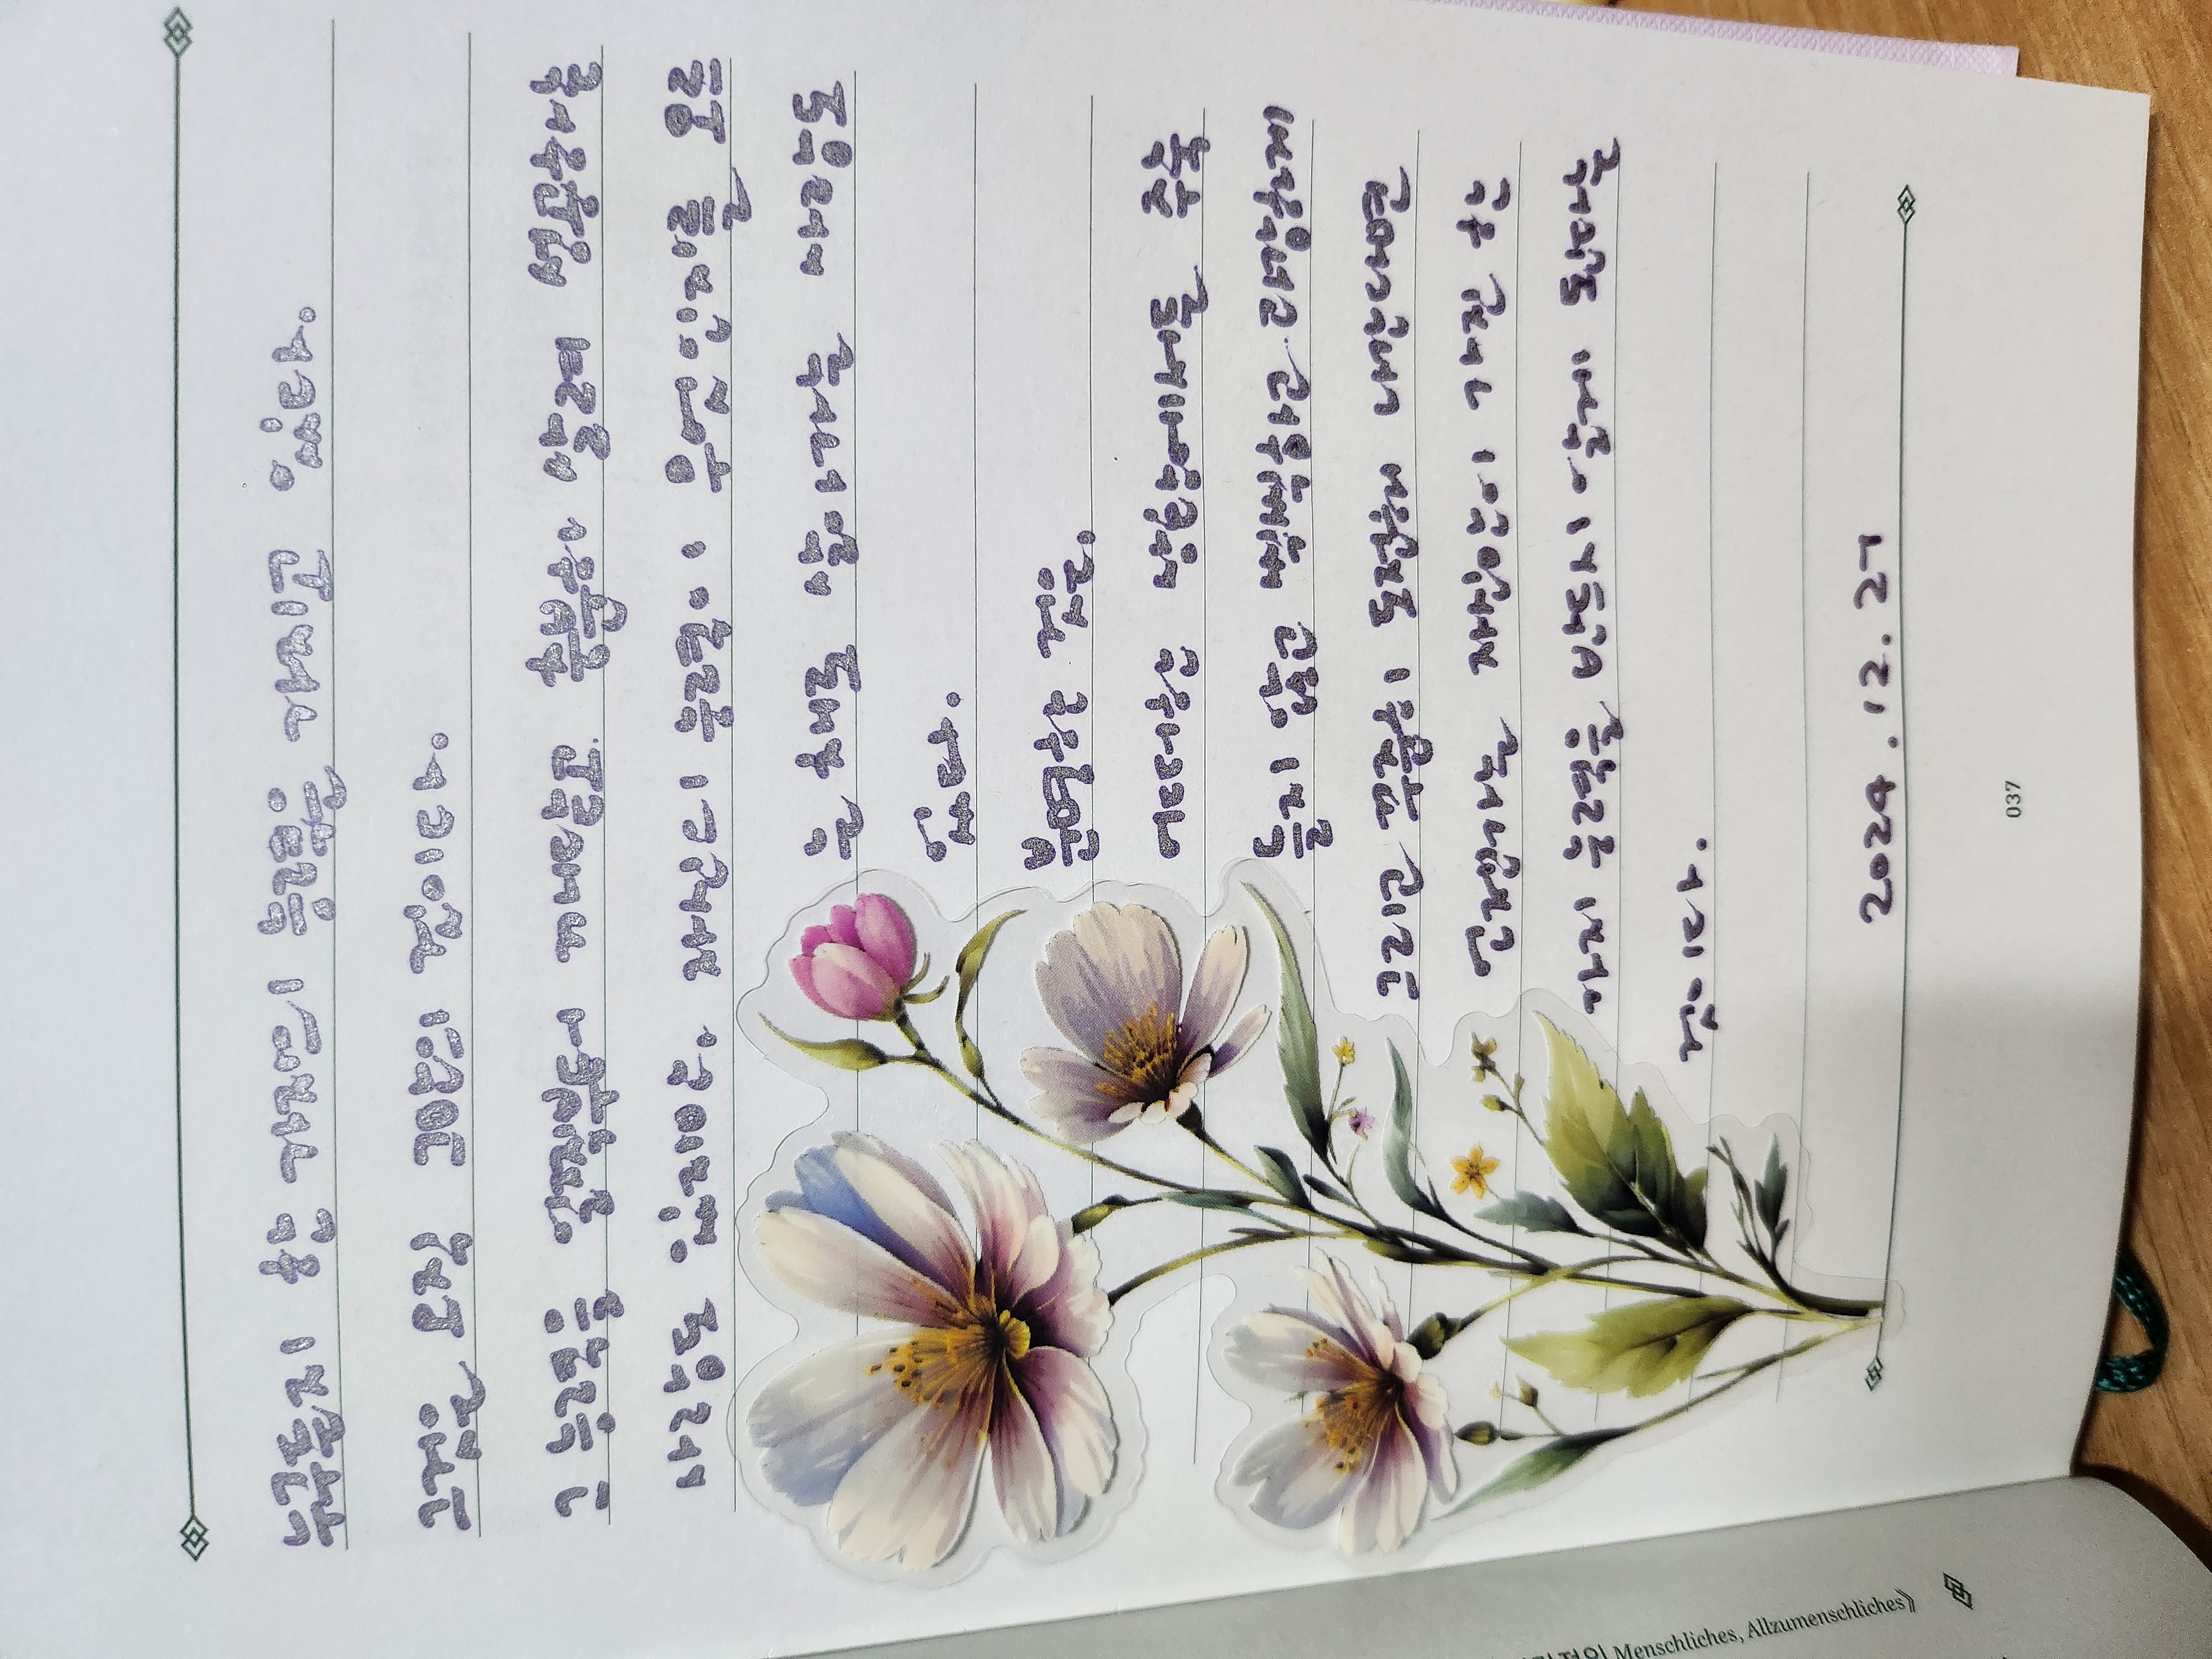 누구든지 한 가지의 능력은 가지고 있다.
그것은 오직 그만의 것이다.
그 능력을 일찍부터 깨닫고 충분히 살려 성공하는
사람도 있지만, 자신의 능력이 무엇인지를 모르
는 채로 살아가는 사람도
있다.
분명한 것은,
어떠한 상황에서든 주눅
들지 않고 씩씩하고 과감하게
그리고 꾸준히 도전해 나간다면
언젠가는 자신만이 가진 한
가지 능력을 반드시 알게 된다는
것이다.
2024.12.27
037
Menschliches, Allzumenschliches》